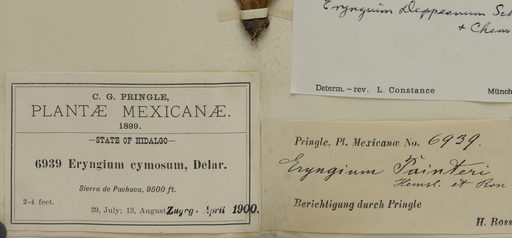 Eryngium Deppeanum Sch
& Cham
Determ.–rev. L. Constance Münch
C. G. PRINGLE,
PLANTÆ MEXICANÆ.
1899.
—STATE OF HIDALGO—
6939 Eryngium cymosum, Delar.
Sierra de Pachuca, 9500 ft.
2-4 feet.
29, July; 13, August Zugeg. April 1900.
Pringle, Pl. Mexicanæ No. 6939.
Eryngium Painteri
Hemsl. et Rose
Berichtigung durch Pringle
H. Ross